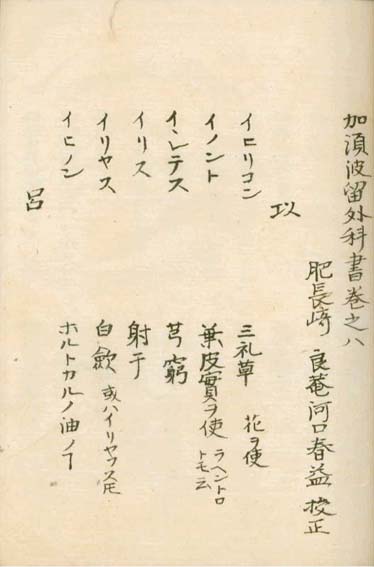 加須波留外科書巻之八
肥長崎 良菴河口春益 挍正
以
イヒリコン 三礼草 花ヲ使
イノント 葉皮實ヲ使 ラヘントロトモ云
イレテス 芎窮
イリス 射干
イリヤス 白歛 或ハイリヤフス𪜈
イヒノン ホルトカルノ油ノヿ
呂